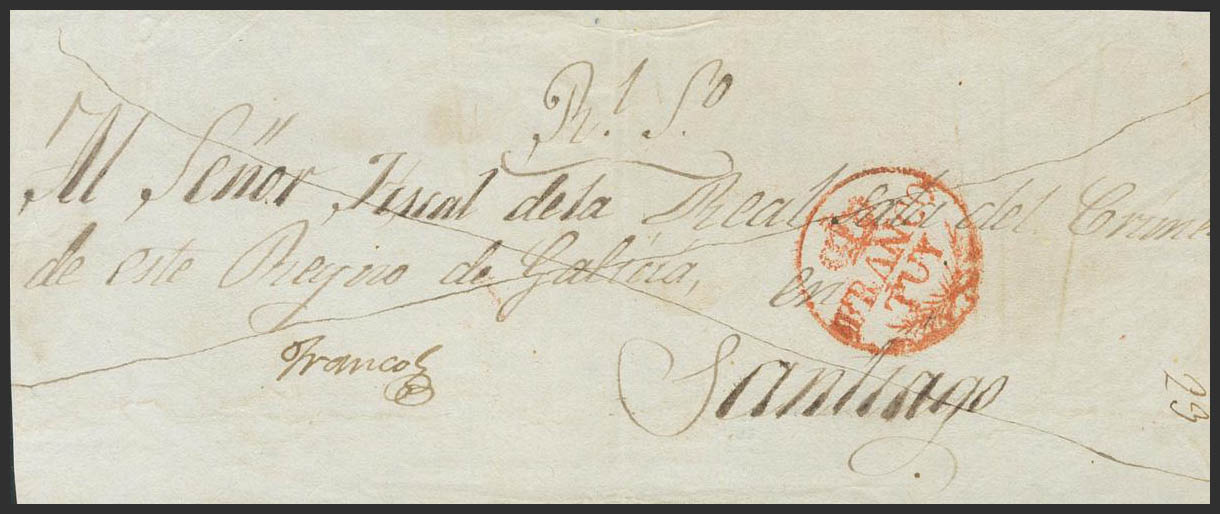 Rl. So.
Al Señor Fiscal de la Real Sala del Crimen
de este Reyno de Galicia, en
Santiago
Franco
FRAN
TUY
23